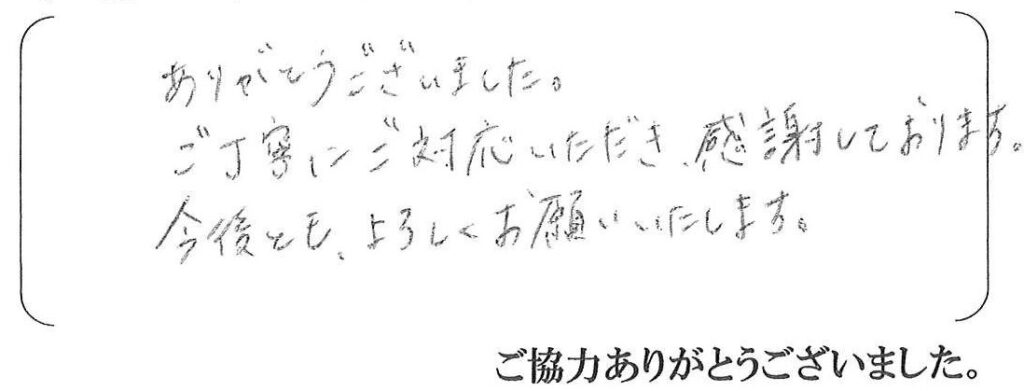 ありがとうございました。
ご丁寧にご対応いただき、感謝しております。
今後とも、よろしくお願いいたします。
ご協力ありがとうございました。